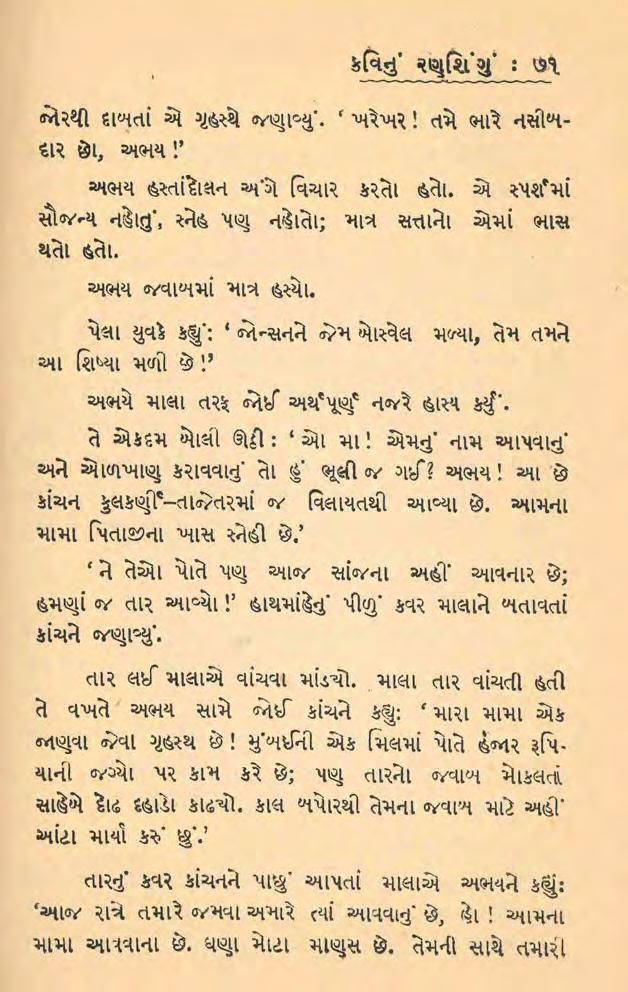 કવિનું રણશિંગું : ૭૧
જોરથી દાબતાં એ ગૃહસ્થે જણાવ્યું. ‘ ખરેખર ! તમે ભારે નસીબ-
દાર છો, અભય !’
અભય હસ્તાંદોલન અંગે વિચાર કરતો હતો. એ સ્પર્શમાં
સૌજન્ય નહોતું, સ્નેહ પણ નહોતો; માત્ર સત્તાનો એમાં ભાસ
થતો હતો.
અભય જવાબમાં માત્ર હસ્યો.
પેલા યુવકે કહ્યું: ‘ જોન્સનને જેમ બોસ્વેલ મળ્યા, તેમ તમને
આ શિષ્યા મળી છે !’
અભયે માલા તરફ જોઈ અર્થપૂર્ણ નજરે હાસ્ય કર્યું.
તે એકદમ બોલી ઊઠી : ‘ ઓ મા ! એમનું નામ આપવાનું
અને ઓળખાણ કરાવવાનું તો હું ભૂલી જ ગઈ? અભય ! આ છે
કાંચન કુલકર્ણી–તાજેતરમાં જ વિલાયતથી આવ્યા છે. આમના
મામા પિતાજીના ખાસ સ્નેહી છે.’
‘ ને તેઓ પોતે પણ આજ સાંજના અહીં આવનાર છે;
હમણાં જ તાર આવ્યો !’ હાથમાંહેનું પીળું કવર માલાને બતાવતાં
કાંચને જણાવ્યું.
તાર લઈ માલાએ વાંચવા માંડ્યો. માલા તાર વાંચતી હતી
તે વખતે અભય સામે જોઈ કાંચને કહ્યું: ‘ મારા મામા એક
જાણવા જેવા ગૃહસ્થ છે ! મુંબઈની એક મિલમાં પોતે હજાર રૂપિ-
યાની જગ્યો પર કામ કરે છે; પણ તારનો જવાબ મોકલતાં
સાહેબે દોઢ દહાડો કાઢ્યો. કાલ બપોરથી તેમના જવાબ માટે અહીં
આંટા માર્યા કરું છું.’
તારનું કવર કાંચનને પાછું આપતાં માલાએ અભયને કહ્યું:
‘આજ રાત્રે તમારે જમવા અમારે ત્યાં આવવાનું છે, હો ! આમના
મામા આવવાના છે. ઘણા મોટા માણસ છે. તેમની સાથે તમારી